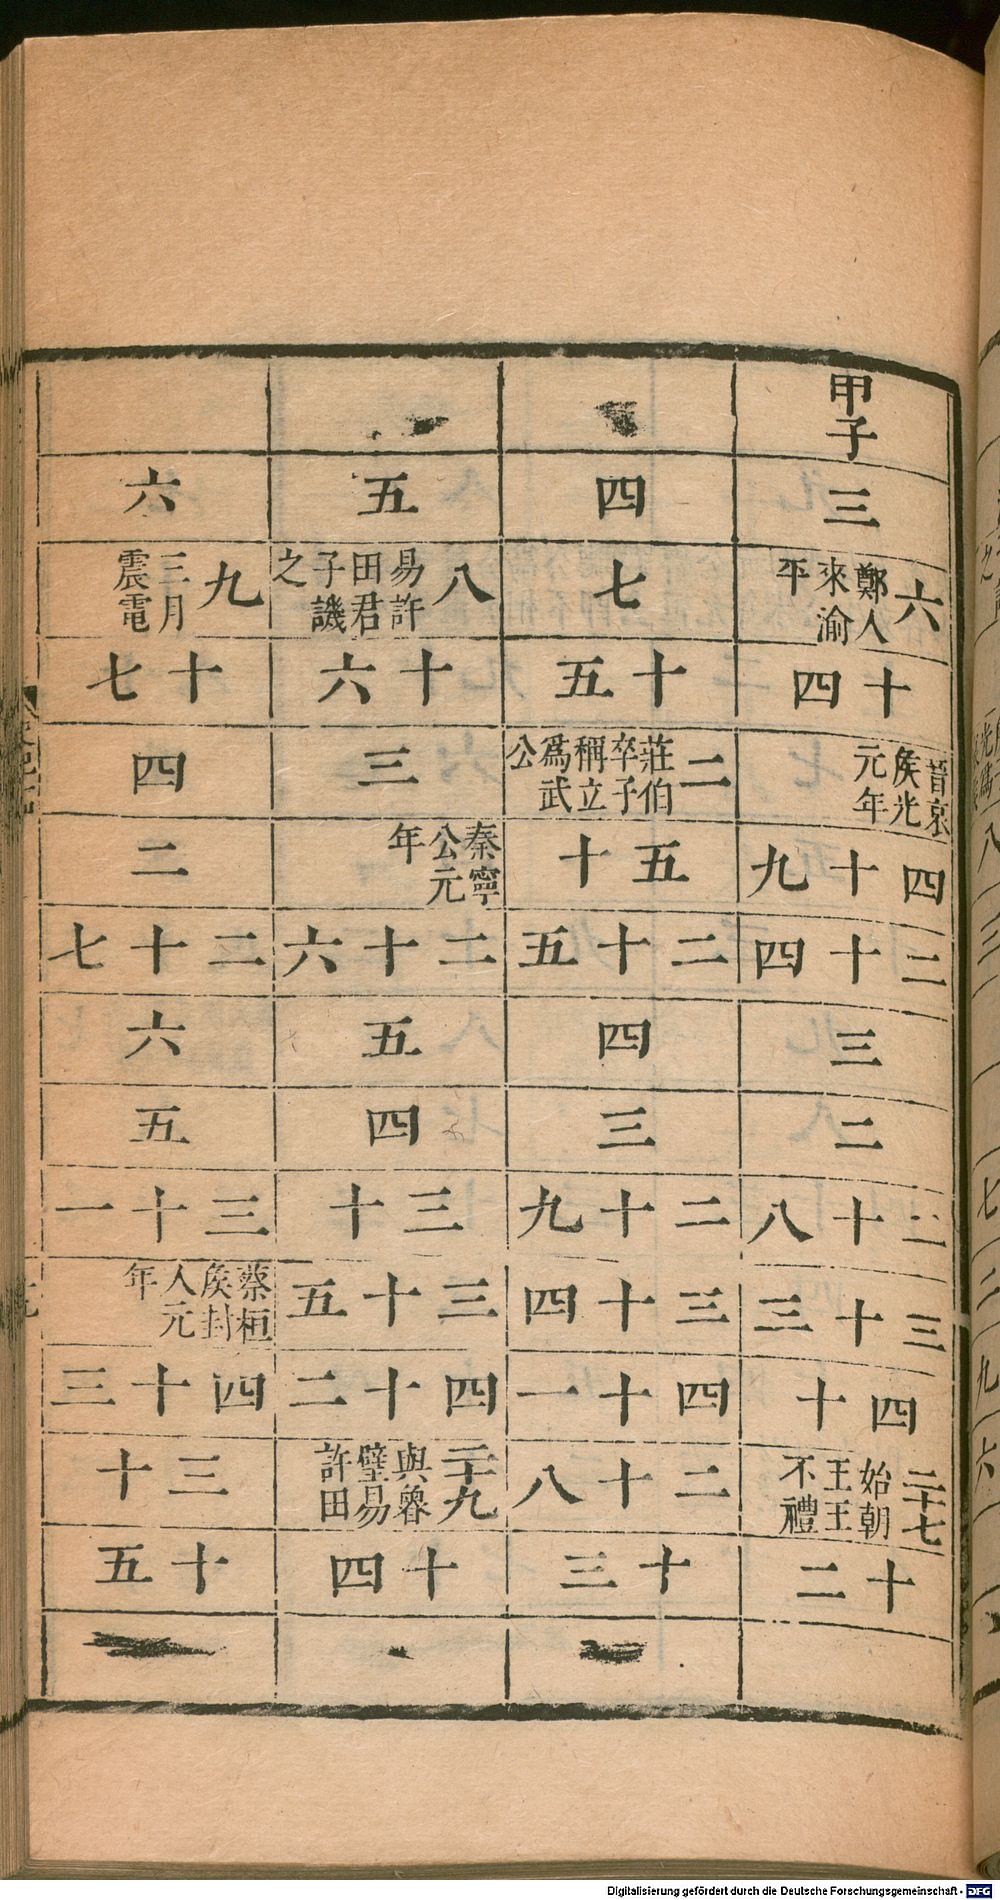 八
三
七
二
九
六
甲子
三
六 鄭人來渝平
十四
晉哀矦光元年
四十九
二十四
三
二
二十八
三十三
四十
二十七 始朝王王不禮
十二
四
七
十五
二 莊伯卒子稱立爲武公
五十
二十五
四
三
二十九
三十四
四十一
二十八
十三
五
八 易許田君子譏之
十六
三
秦寧公元年
二十六
五
四
三十
三十五
四十二
二十九 與魯璧易許田
十四
六
九 三月震電
十七
四
二
二十七
六
五
三十一
蔡桓矦封人元年
四十三
三十
十五
Digitalisierung gefördert durch die Deutsche Forschungsgemeinschaft - DFG